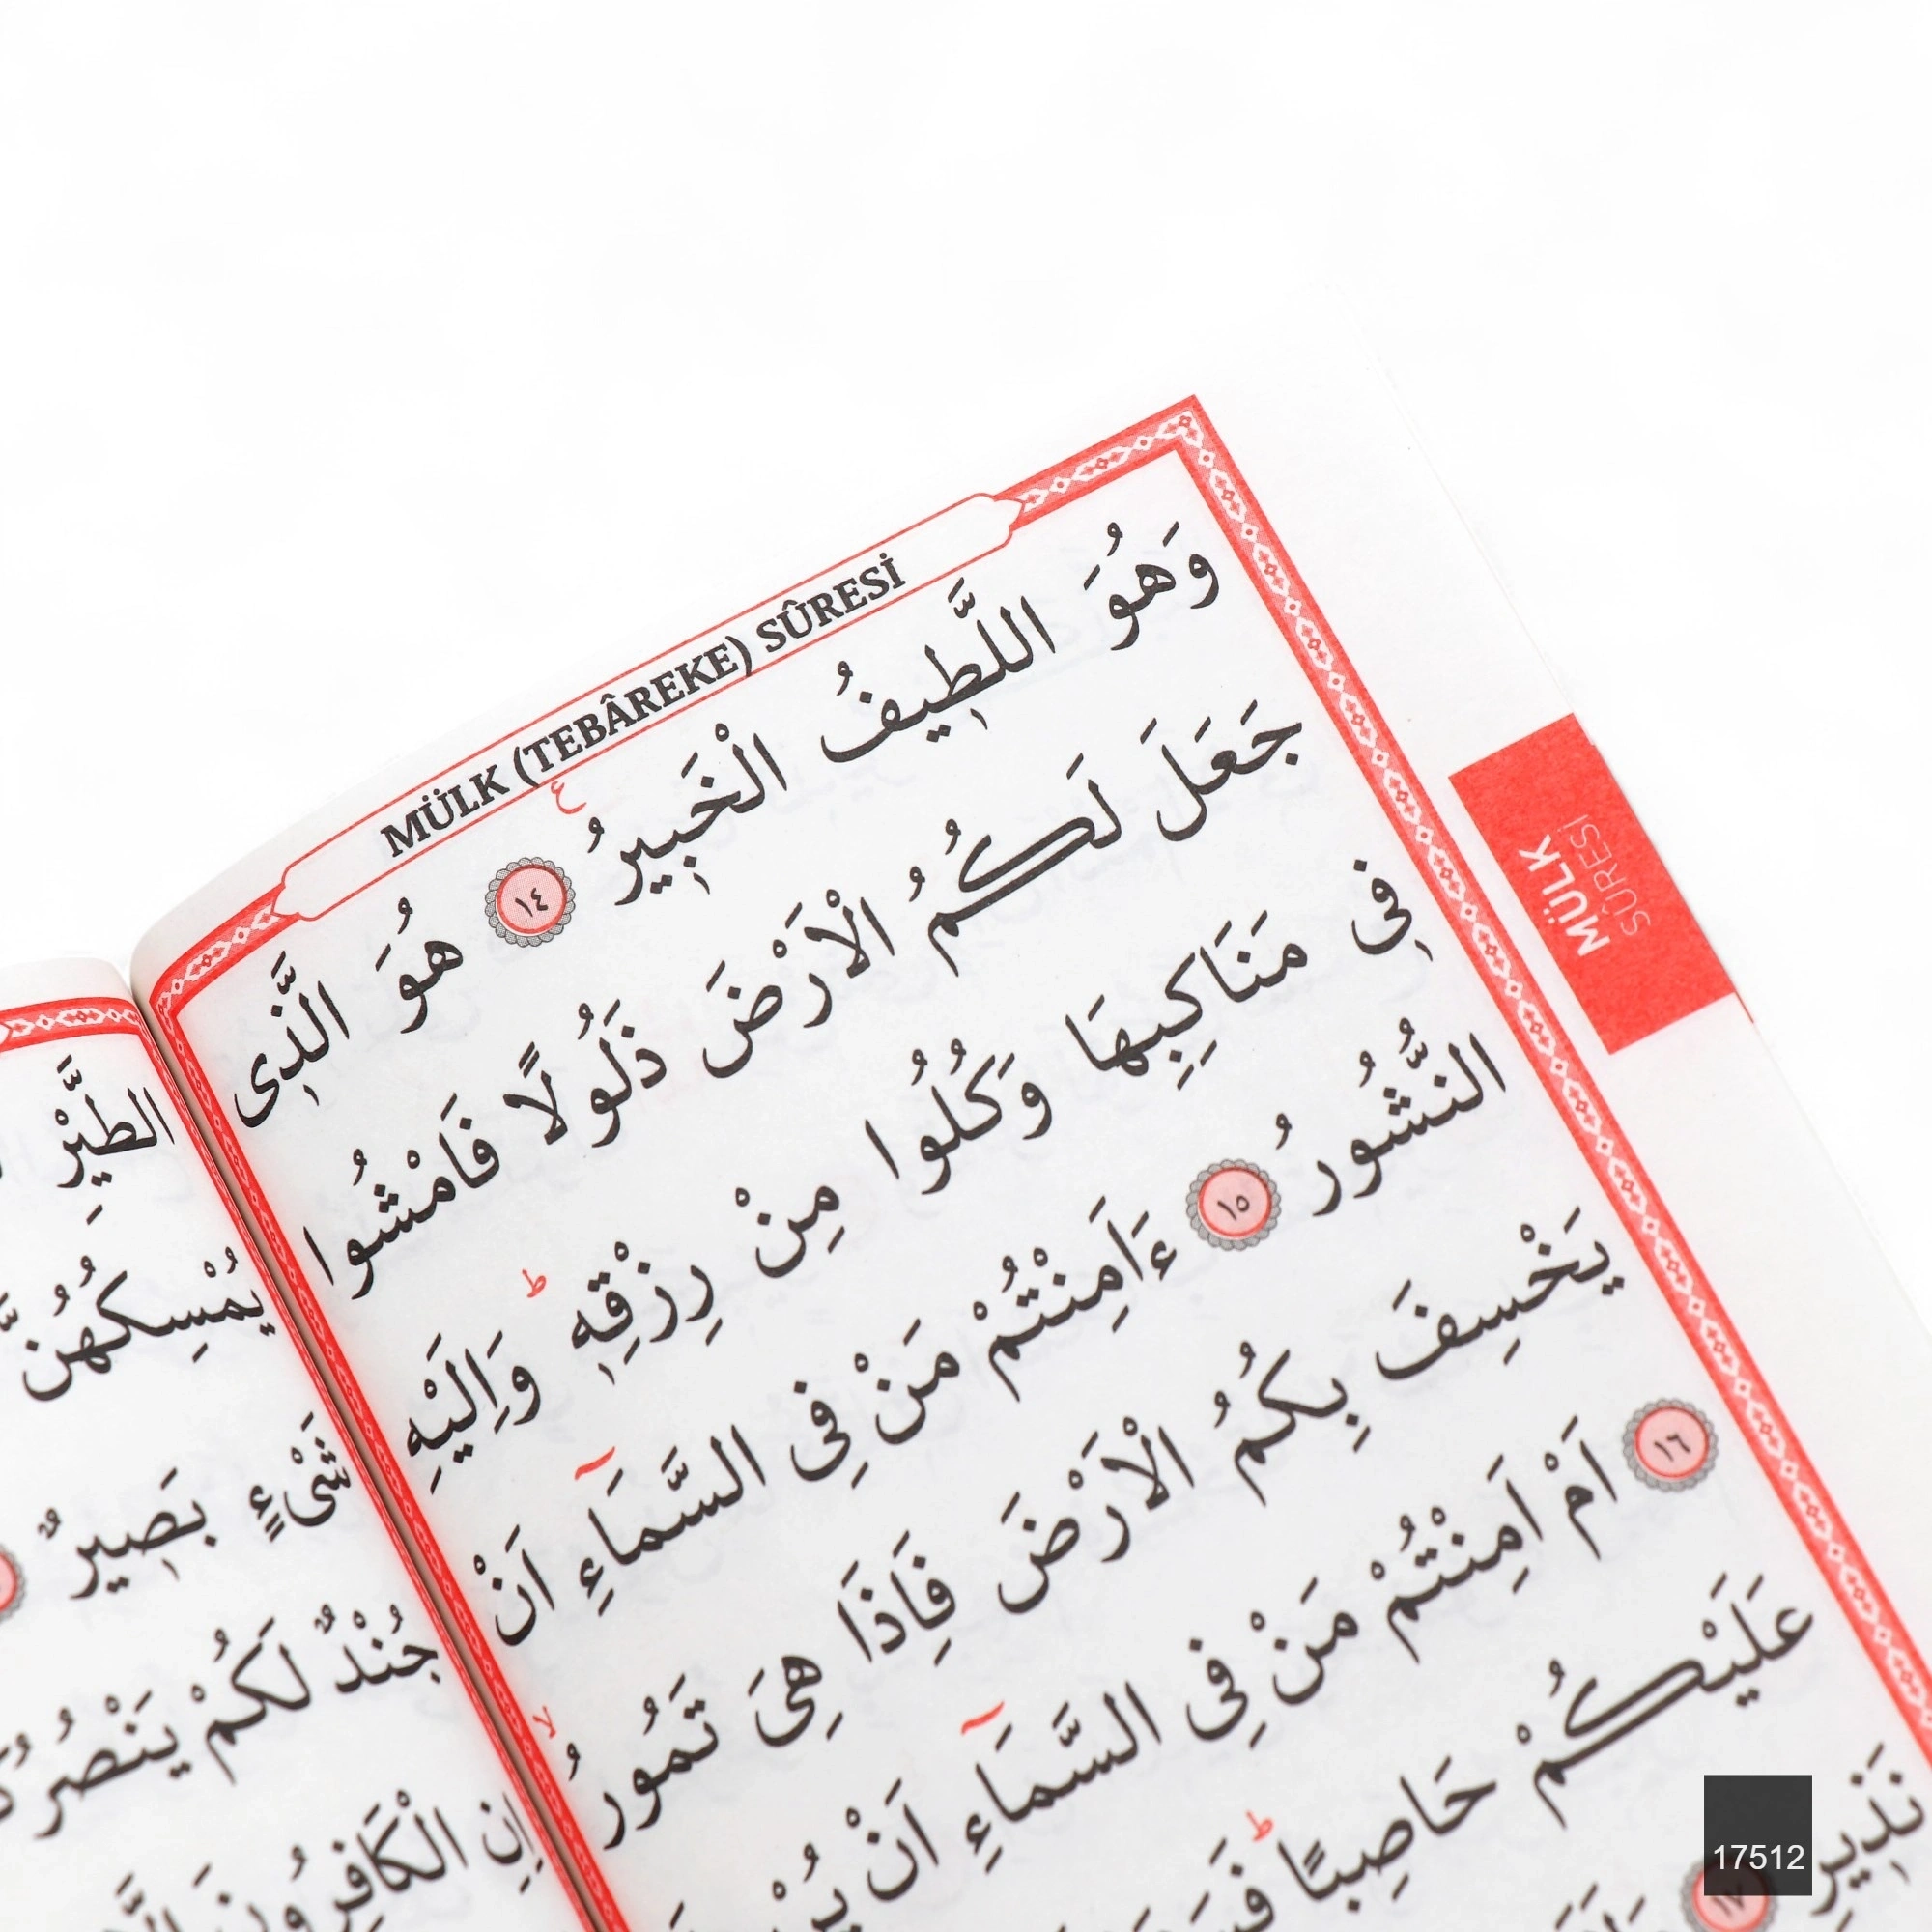 MÜLK (TEBÂREKE) SÛRESİ
وَهُوَ اللَّطِيفُ الْخَبِيرُ ١٤ هُوَ الَّذِى
جَعَلَ لَكُمُ الْاَرْضَ ذَلُولًا فَامْشُوا
فِى مَنَاكِبِهَا وَكُلُوا مِنْ رِزْقِهٖ ط وَاِلَيْهِ
النُّشُورُ ١٥ ءَاَمِنْتُمْ مَنْ فِى السَّمَٓاءِ اَنْ
يَخْسِفَ بِكُمُ الْاَرْضَ فَاِذَا هِىَ تَمُورُ لا
١٦ اَمْ اَمِنْتُمْ مَنْ فِى السَّمَٓاءِ اَنْ
عَلَيْكُمْ حَاصِبًا ط
نَذِيرِ ١٧
MÜLK
SÛRESİ
الطَّيْرِ
يُمْسِكُهُنَّ
شَىْءٍ بَصِيرٌ
جُنْدٌ لَكُمْ يَنْصُرُ
اِنِ الْكَافِرُونَ
17512